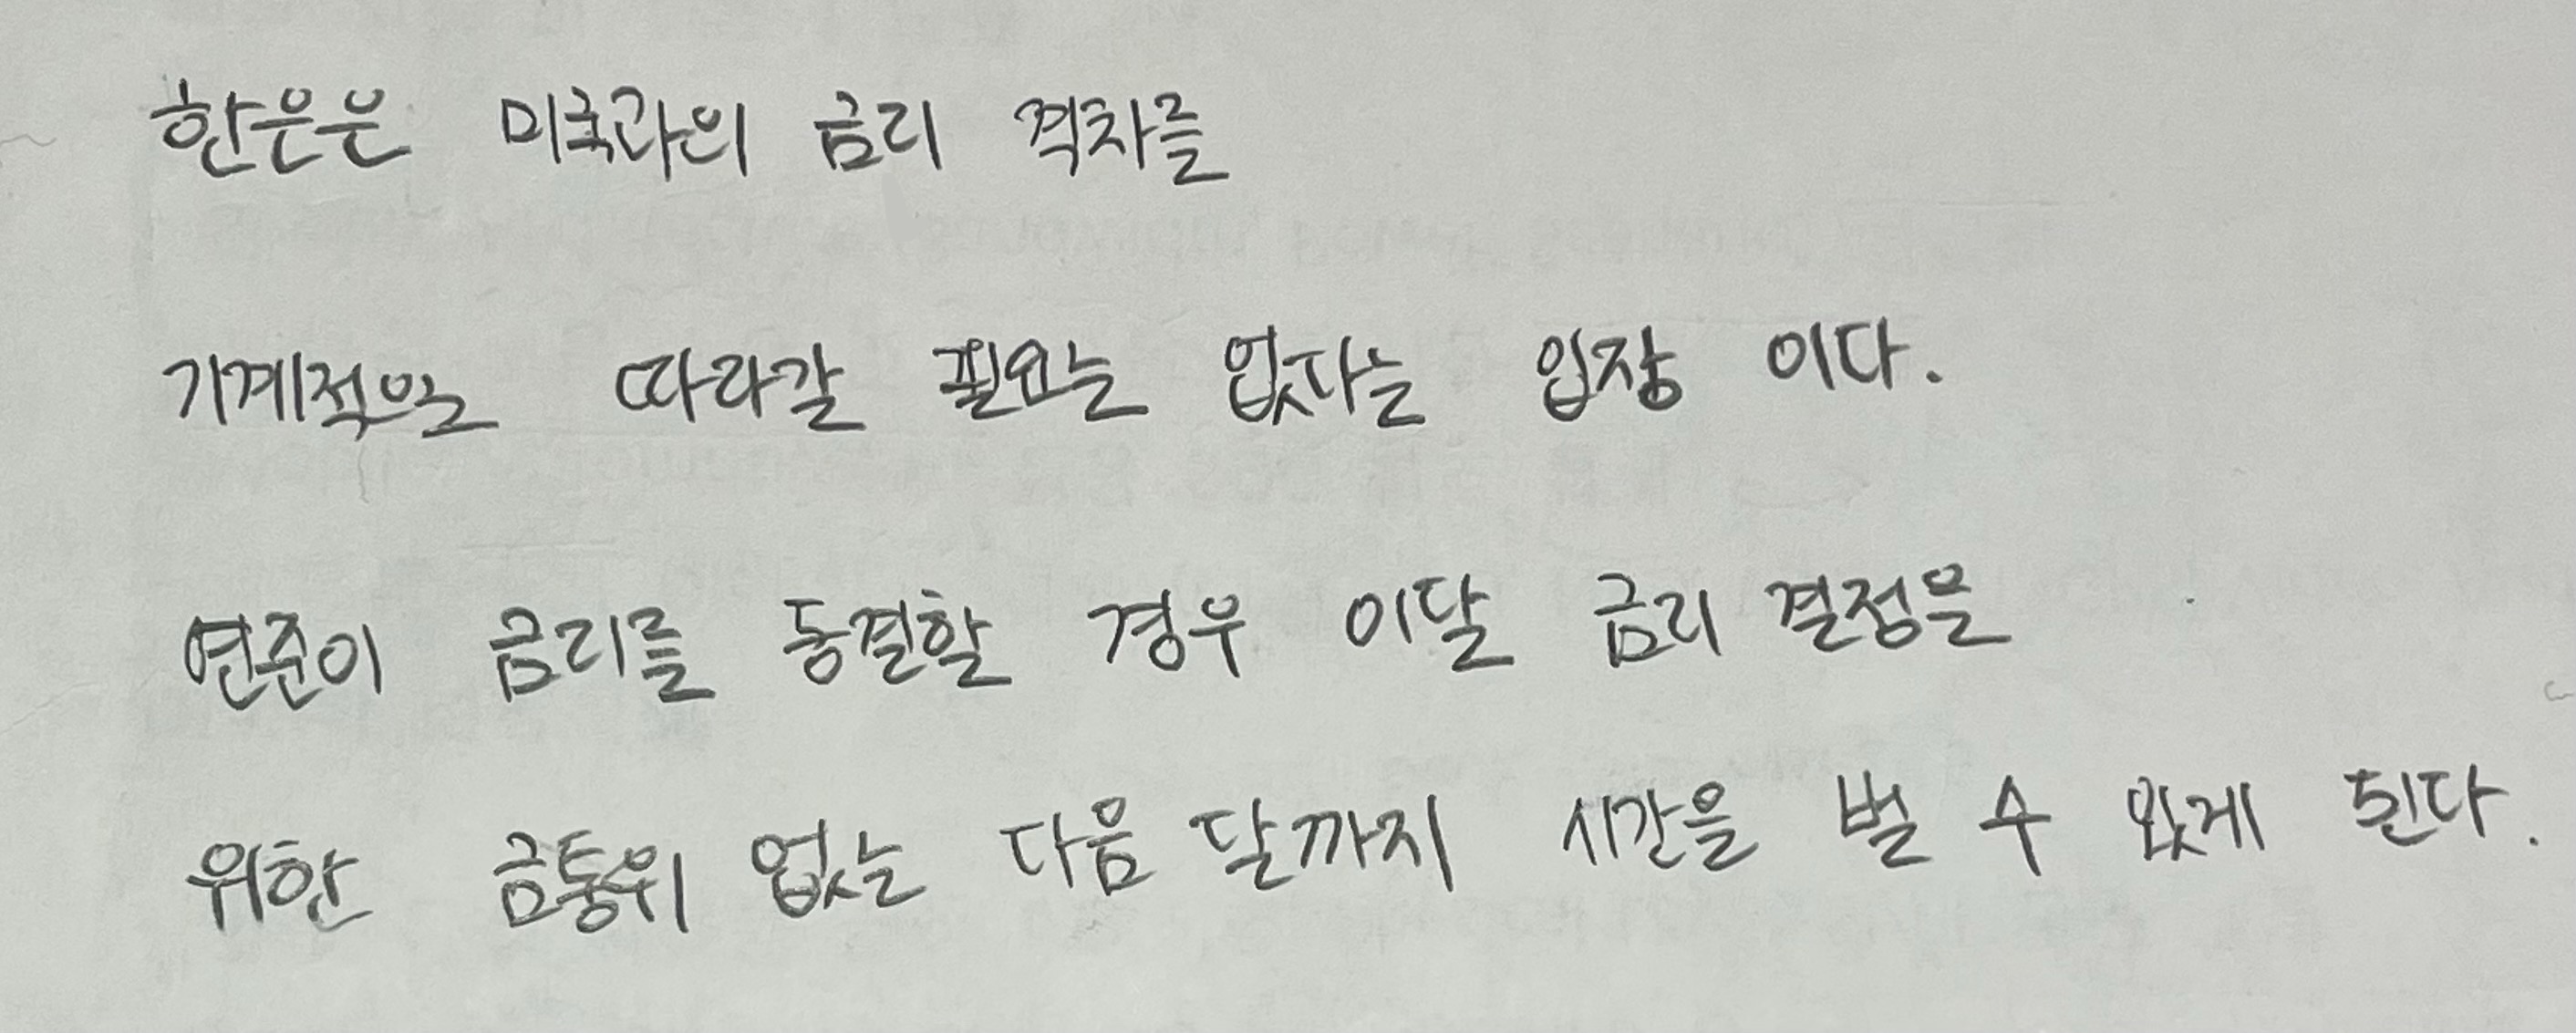 한은은 미국과의 금리 격차를
기계적으로 따라갈 필요는 없다는 입장 이다.
연준이 금리를 동결할 경우 이달 금리 결정을
위한 금통위 없는 다음 달까지 시간을 벌 수 있게 된다.